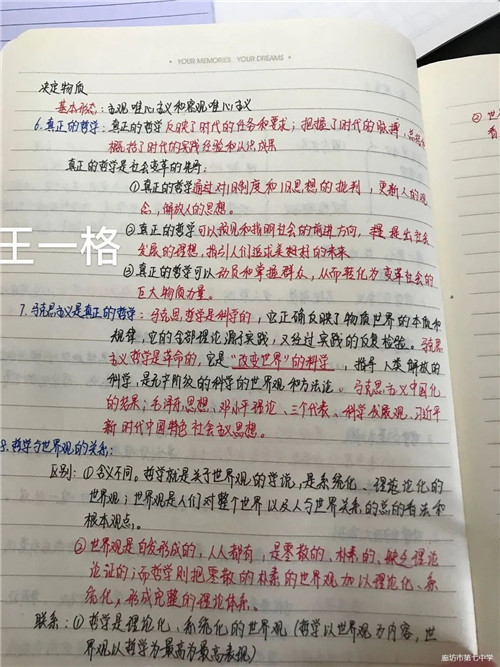 YOUR MEMORIES YOUR DREAMS
决定物质
基本形态：主观唯心主义和客观唯心主义
6.真正的哲学：真正的哲学反映了时代的任务和要求；把握了时代的脉搏，总结和
概括了时代的实践经验和认识成果
真正的哲学是社会变革的先导：
①真正的哲学通过对旧制度和旧思想的批判，更新人的观
念，解放人的思想。
②真正的哲学可以预见和指明社会的前进方向，提出社会
发展的理想，指引人们追求美好的未来
③真正的哲学可以动员和掌握群众，从而转化为变革社会的
巨大物质力量。
王一格
7.马克思主义是真正的哲学：马克思哲学是科学的，它正确反映了物质世界的本质和
规律，它的全部理论源于实践，又经过实践的反复检验。马克思
主义哲学是革命的，它是“改变世界”的科学，指导人类解放的
科学，是无产阶级的科学的世界观和方法论。马克思主义中国化
的成果：毛泽东思想、邓小平理论、三个代表、科学发展观、习近平
新时代中国特色社会主义思想。
8.哲学与世界观的关系：
区别：①含义不同。哲学就是关于世界观的学说，是系统化、理论化的
世界观；世界观是人们对整个世界以及人与世界关系的总的看法和
根本观点。
②世界观是自发形成的，人人都有，是零散的、朴素的、缺乏理论
论证的；而哲学则把零散的朴素的世界观加以理论化、系
统化，形成完整的理论体系。
联系：①哲学是理论化、系统化的世界观（哲学以世界观为内容，世
界观以哲学为最高为最高表现）
②世
看
廊坊市第七中学